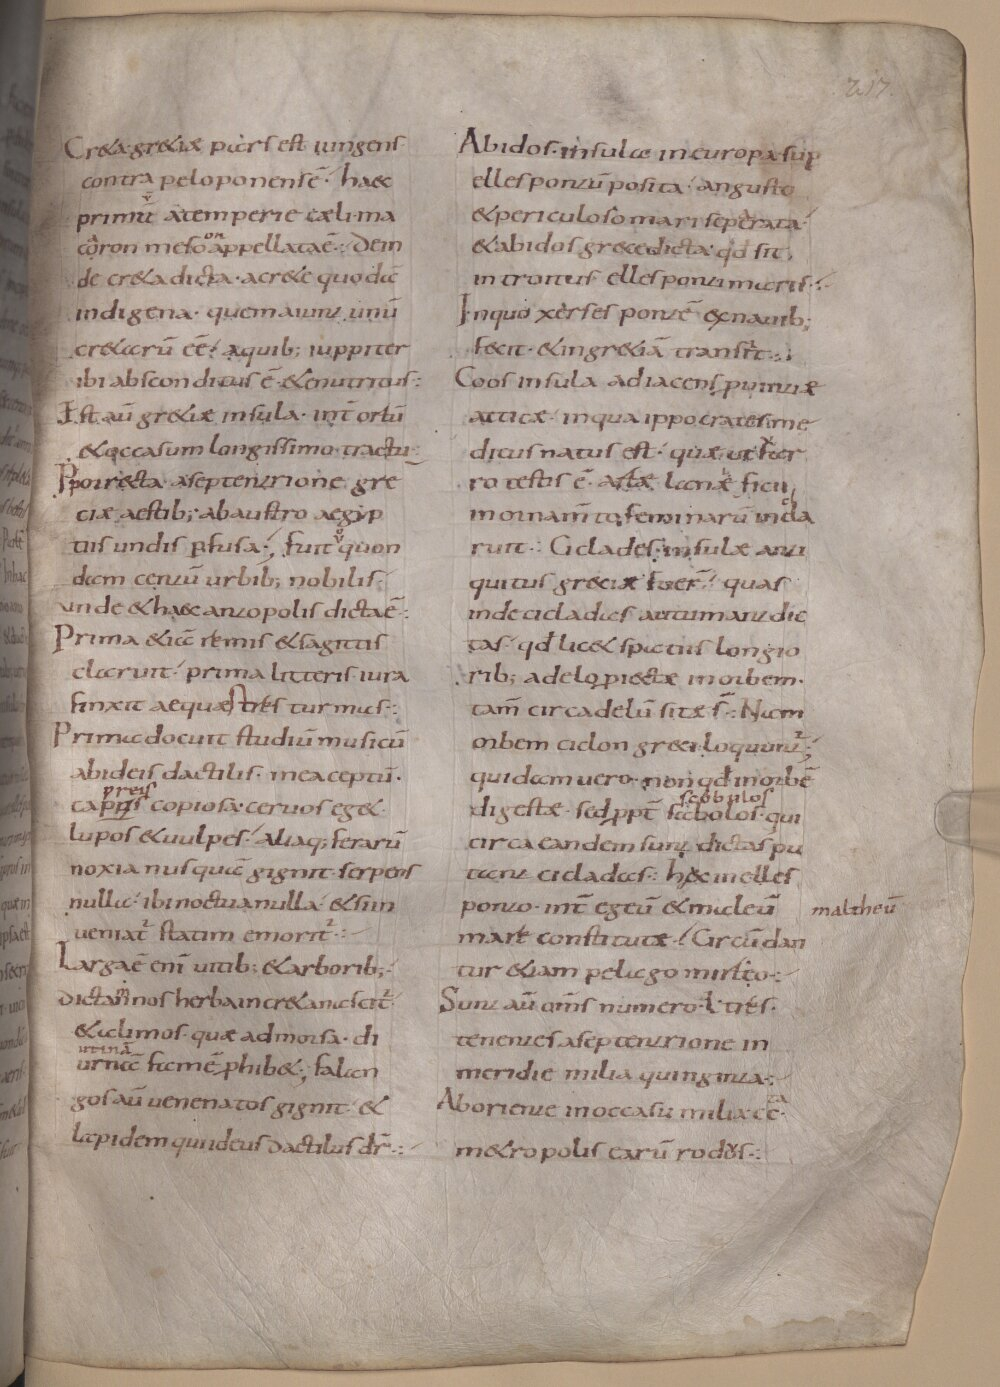 217.
Creta greciae pars est iungens
contra peloponensē· haec
primū a temperie caeli ma
caron meson appellata ē· Dein
de creta dicta· a crete quodā
indigena· quem aiunt unū
cretarū eē· a quib; iuppiter
ibi absconditus ē· & enutritus:
Est aū greciae insula· int̄ ortū
& occasum longissimo tractu:
Pporrecta a septentrione gre
ciae aestib; ab austro aegyp
tiis undis ꝑfusa·; fuit quon
dam centū urbib; nobilis·
unde & haec antopolis dicta ē·:
Prima etiā remis & sagittis
claruit· prima litteris iura
finxit aequestres turmas·:
Prima docuit studiū musicū
ab ideis dactilis· in ea ceptū·
preis
capris copiosa· ceruos eget·
lupos & uulpes· aliaq; ferarū
noxia nusquā gignit· serpens
nulla· ibi noctua nulla· & si in
ueniat̄ statim emorit̄·:
Larga ē enī uitib; & arborib;
dictamnos herba in creta nascit̄·
& alimos· quae admorsa· di
utinā
urnā famē phibet·; falan
gos aū uenenatos gignit· &
lapidem qui ideus dactilus dr̄·:
Abidos· insula in europa sup
ellespontū posita· angusto
& periculoso mari seperata·
& abidos grece dicta· qd̄ sit
introitus ellesponti maris·:
In quo xerses pontē ex nauib;
fecit· & in greciā transit·:
Coos insula adiacens puintiae
atticae· in qua ippocrates me
dicus natus est· quae ut uar
ro testis ē· arte lanae ficii,
in ornam̄to feminarū incla
ruit·: Ciclades· insulae anti
quitus greciae fuer̄· quas
inde cicladas autumant dic
tas· qd̄ licet spatiis longio
rib; a delo piectae in orbem·
tam̄ circa delū sitae s̄·: Nam
orbem ciclon greci loquunt̄·;
quidam uero· non qd̄ in orbē
digestae· sed ppt̄ scobolos· qui
scobulos
circa eandem sunt dictas pu
tant cicladas·: haec in elles
ponto· int̄ egeū & maleū
maltheū
mare constitutae· Circūdan
tur etiam pelago mirteo·:
Sunt aū om̄s numero· L· tres·
tenentes a septentrione in
meridie milia quinginta·:
Ab oriente in occasū milia cc̄·
metropolis earū rodos·: